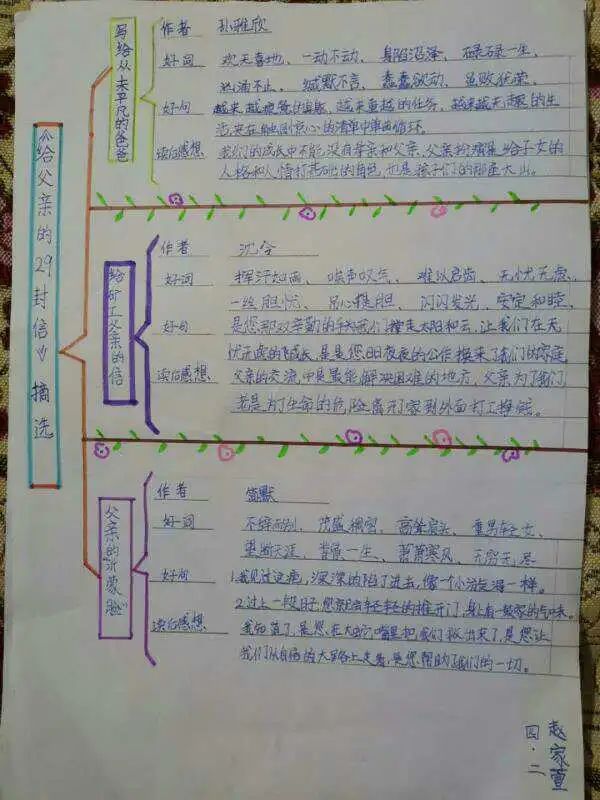 《给父亲的29封信》摘选
写给从未平凡的爸爸
作者 孙雅欣
好词 欢天喜地、一动不动、身陷沼泽、碌碌一生、
汹涌不止、缄默不言、蠢蠢欲动、虽败犹荣、
好句 越来越疲惫的面
越来越重的任务、越来越无趣的生
活,夹在触目惊心的清单中单曲循环。
读后感想 我们的成长中不能没有母亲和父亲、父亲扮演是给子女的
人格和人情打基础的角色,也是孩子们的那座大山。
给矿工父亲的信
作者 沈
好词 挥汗如雨、唉声叹气、难以启齿、无忧无虑、
一丝担忧、吊心提胆、闪闪发光、安定和睦、
好句 是您那双辛勤的手为我们撑走太阳和云,让我们在无
忧无虑的飞成长,是是您日日夜夜的工作换来了我们的家庭
读后感想、父亲的交流中是最能解决困难的地方,父亲为了我们,
老是为了生命的危险离开了家到外面打工挣钱。
父亲的“沂蒙脸”
作者 简默
好词 不辞而别、茂盛稠密、高耸肩头、重男轻女、
望断天涯、普通一生、萧萧寒风、无穷无尽
好句 1.我见过这疤,深深的陷了进去,像个小
一样。
2.过上一段日子,您就会轻轻的推开门,身上有一股家的气味。
读后感想 我知道了,是您,在大
嘴里把我们救出来了,是您让
我们从
大路上走
,是您帮助了我们的一切。
四·二
赵家萱